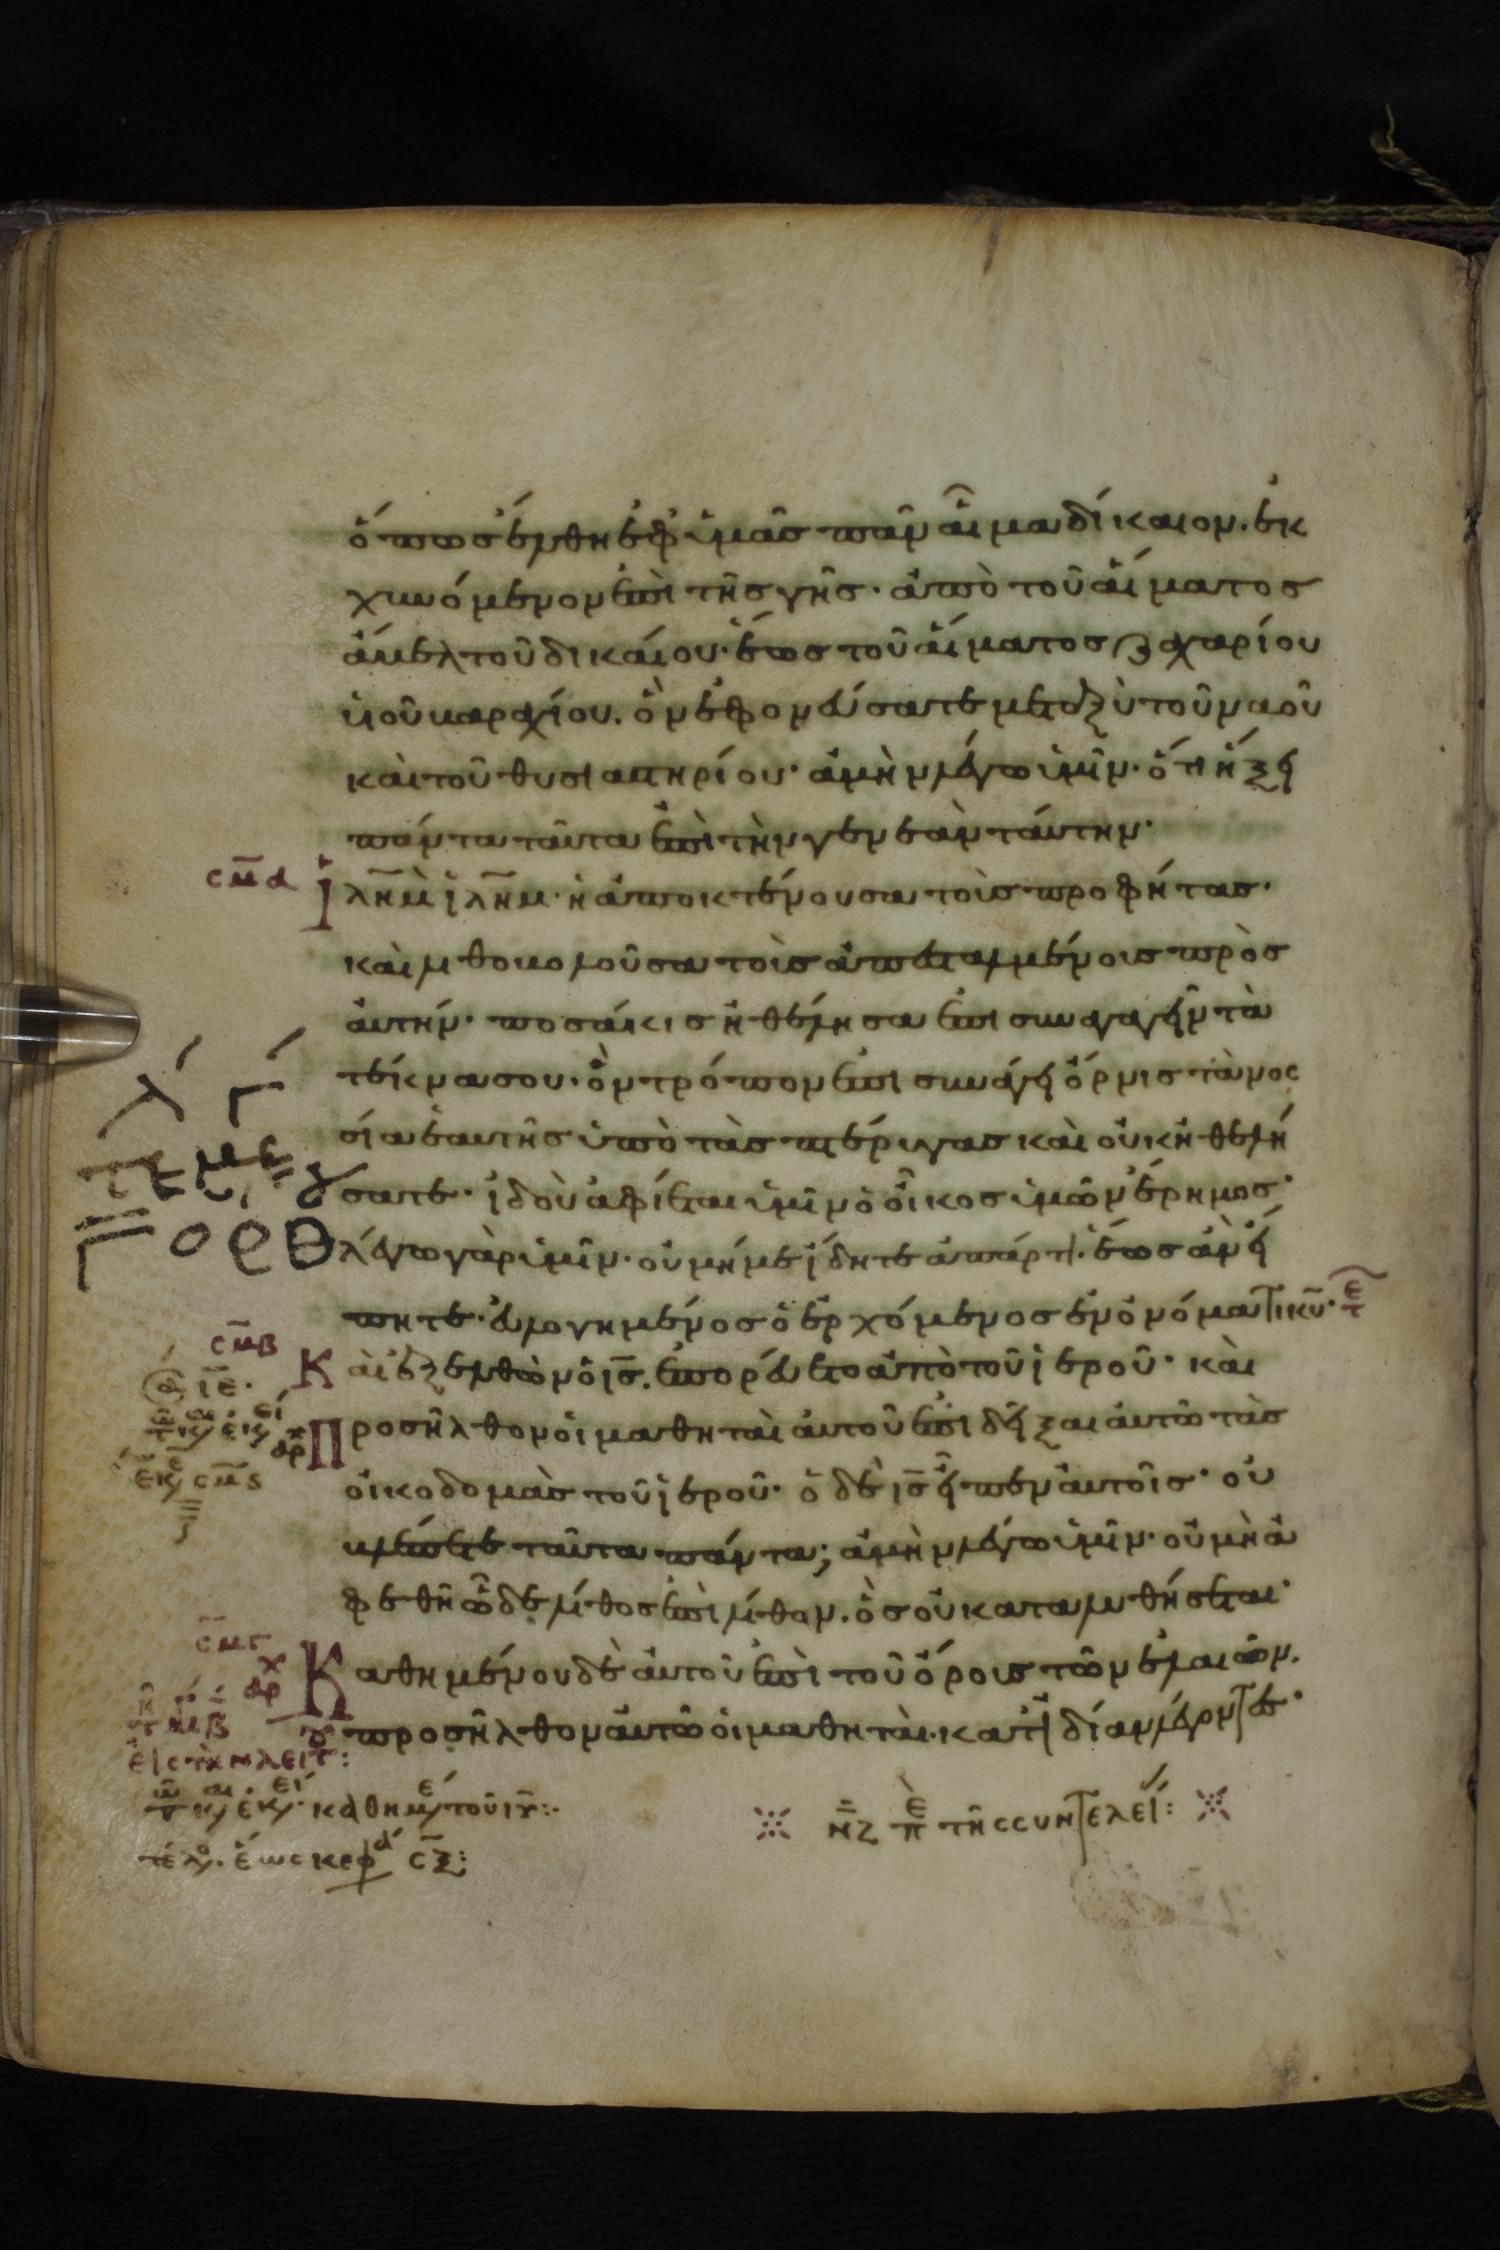 ὅπως ἔλθη ἐφ ὑμᾶς πᾶν αἷμα δίκαιον. ἐκ
χυνόμενον ἐπὶ τῆς γῆς· ἀπὸ τοῦ αἵματος
ἄβελ τοῦ δικαίου· ἕως τοῦ αἵματος ζαχαρίου
υἱοῦ βαραχίου. ὃν ἐφονεύσατε μεταξὺ τοῦ ναοῦ
καὶ τοῦ θυσιαστηρίου· ἀμὴν λέγω ὑμῖν· ὅτι ἥξει
πάντα ταῦτα ἐπὶ τὴν γενεὰν ταύτην·
ςμα Ἰλημ ἰλημ· ἡ ἀποκτένουσα τοὺς προφήτας·
καὶ λιθοβολοῦσα τοὺς ἀπεσταλμένους πρὸς
αὐτήν· ποσάκις ἠθέλησα ἐπισυναγαγεῖν τὰ
τέκνα σου· ὃν τρόπον ἐπισυνάγει ὄρνις τὰ νος
σία ἑαυτῆς ὑπὸ τὰς πτέρυγας καὶ οὐκ ἠθελή
σατε· ἰδοὺ ἀφίεται ὑμῖν ὁ οἶκος ὑμῶν ἔρημος·
λέγω γὰρ ὑμῖν· οὐ μή με ἴδητε ἀπάρτι· ἕως ἂν εἴ
πητε· εὐλογημένος ὁ ἐρχόμενος ἐν ὀνόματι κυ·
ςμβ Καὶ ἐξελθὼν ὁ ις. ἐπορεύετο ἀπὸ τοῦ ἱεροῦ· καὶ
προσῆλθον οἱ μαθηταὶ αὐτοῦ ἐπιδεῖξαι αὐτῶ τὰς
οἰκοδομὰς τοῦ ἱεροῦ· ὁ δὲ ις εἶπεν αὐτοῖς· οὐ
βλέπετε ταῦτα πάντα; ἀμὴν λέγω ὑμῖν· οὐ μὴ ἀ
φεθῆ ὧδε λίθος ἐπὶ λίθον. ὃς οὐ καταλυθήσεται·
ςμγ Καθημένου δὲ αὐτοῦ ἐπὶ τοῦ ὄρους τῶν ἐλαιῶν.
προσῆλθον αὐτῶ οἱ μαθηταὶ· κατ ἰδίαν λέγοντες·
νζ πε τῆς συντελεί: